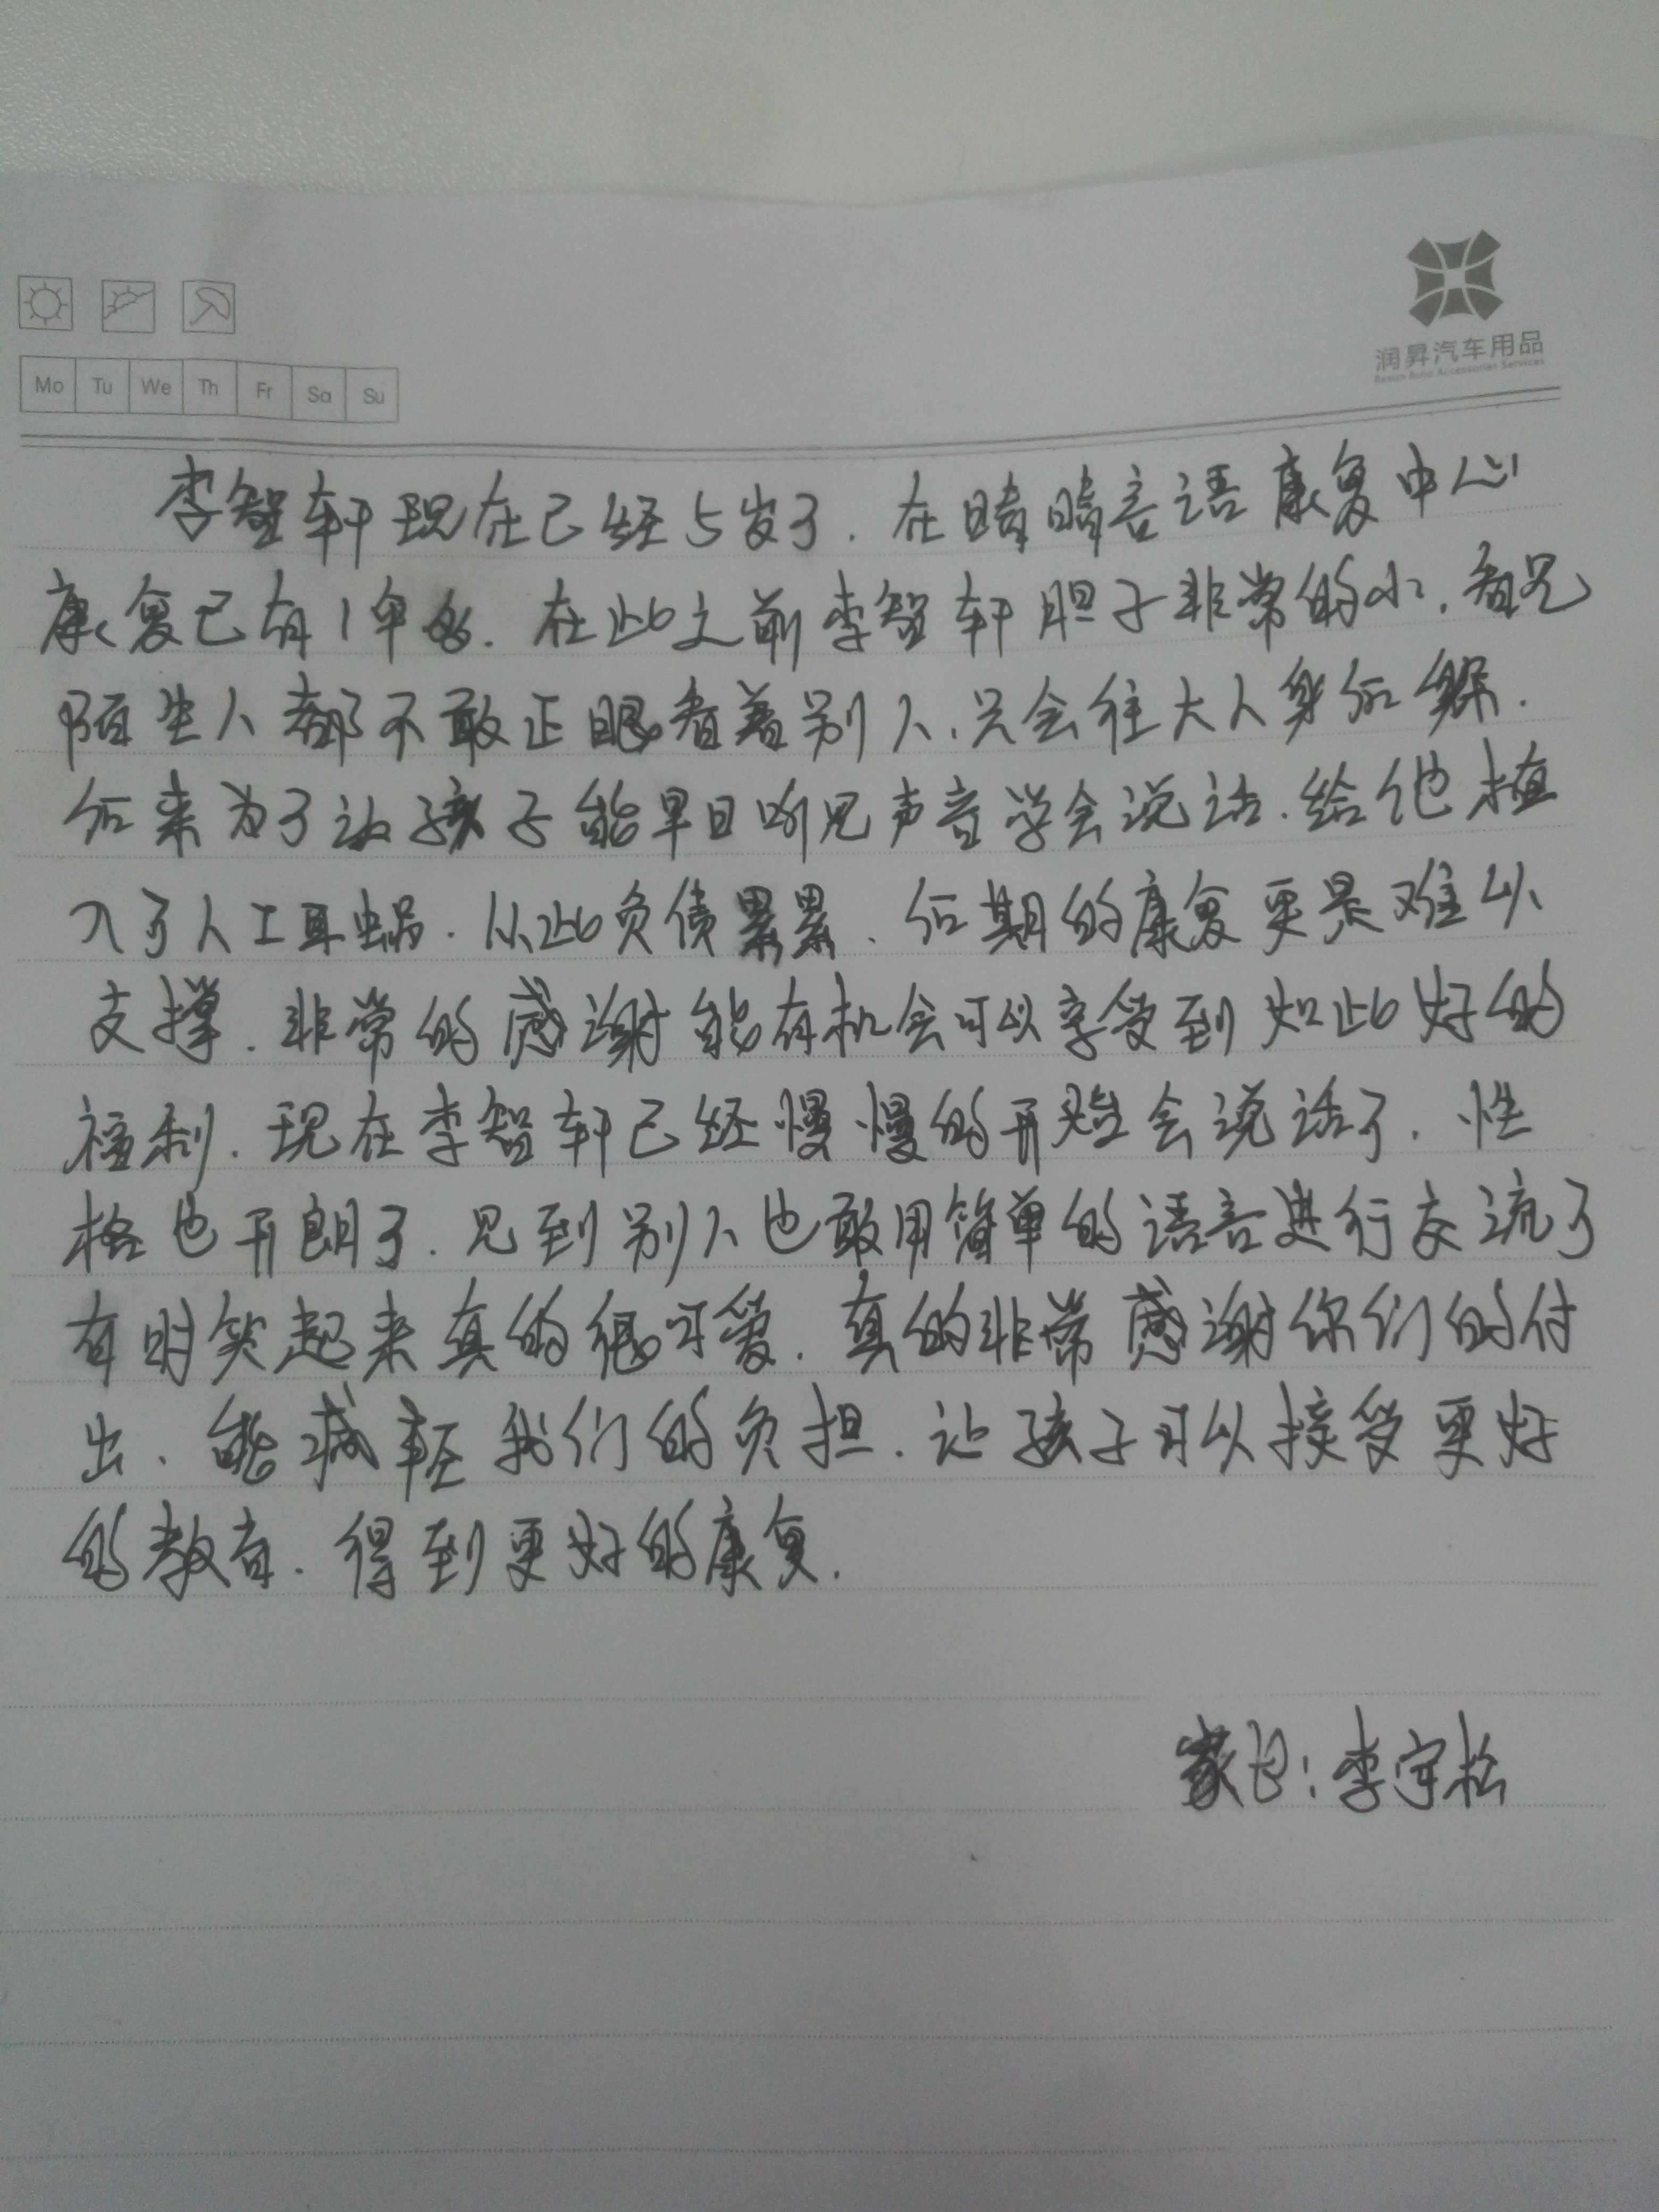 润昇汽车用品
Resun Auto Accessories Services
Mo Tu We Th Fr Sa Su
李智轩现在已经5岁了.在晴晴言语康复中心
康复已有1年多.在此之前李智轩胆子非常的小.看见
陌生人都不敢正眼看着别人.只会往大人身后躲.
后来为了让孩子能早日听见声音学会说话.给他植
入了人工耳蜗.从此负债累累、后期的康复更是难以
支撑.非常的感谢能有机会可以享受到如此好的
福利.现在李智轩已经慢慢的开始会说话了.性
格也开朗了.见到别人也敢用简单的语言进行交流了
有时笑起来真的很可爱.真的非常感谢你们的付
出、能减轻我们的负担.让孩子可以接受更好
的教育.得到更好的康复.
家长:李守松